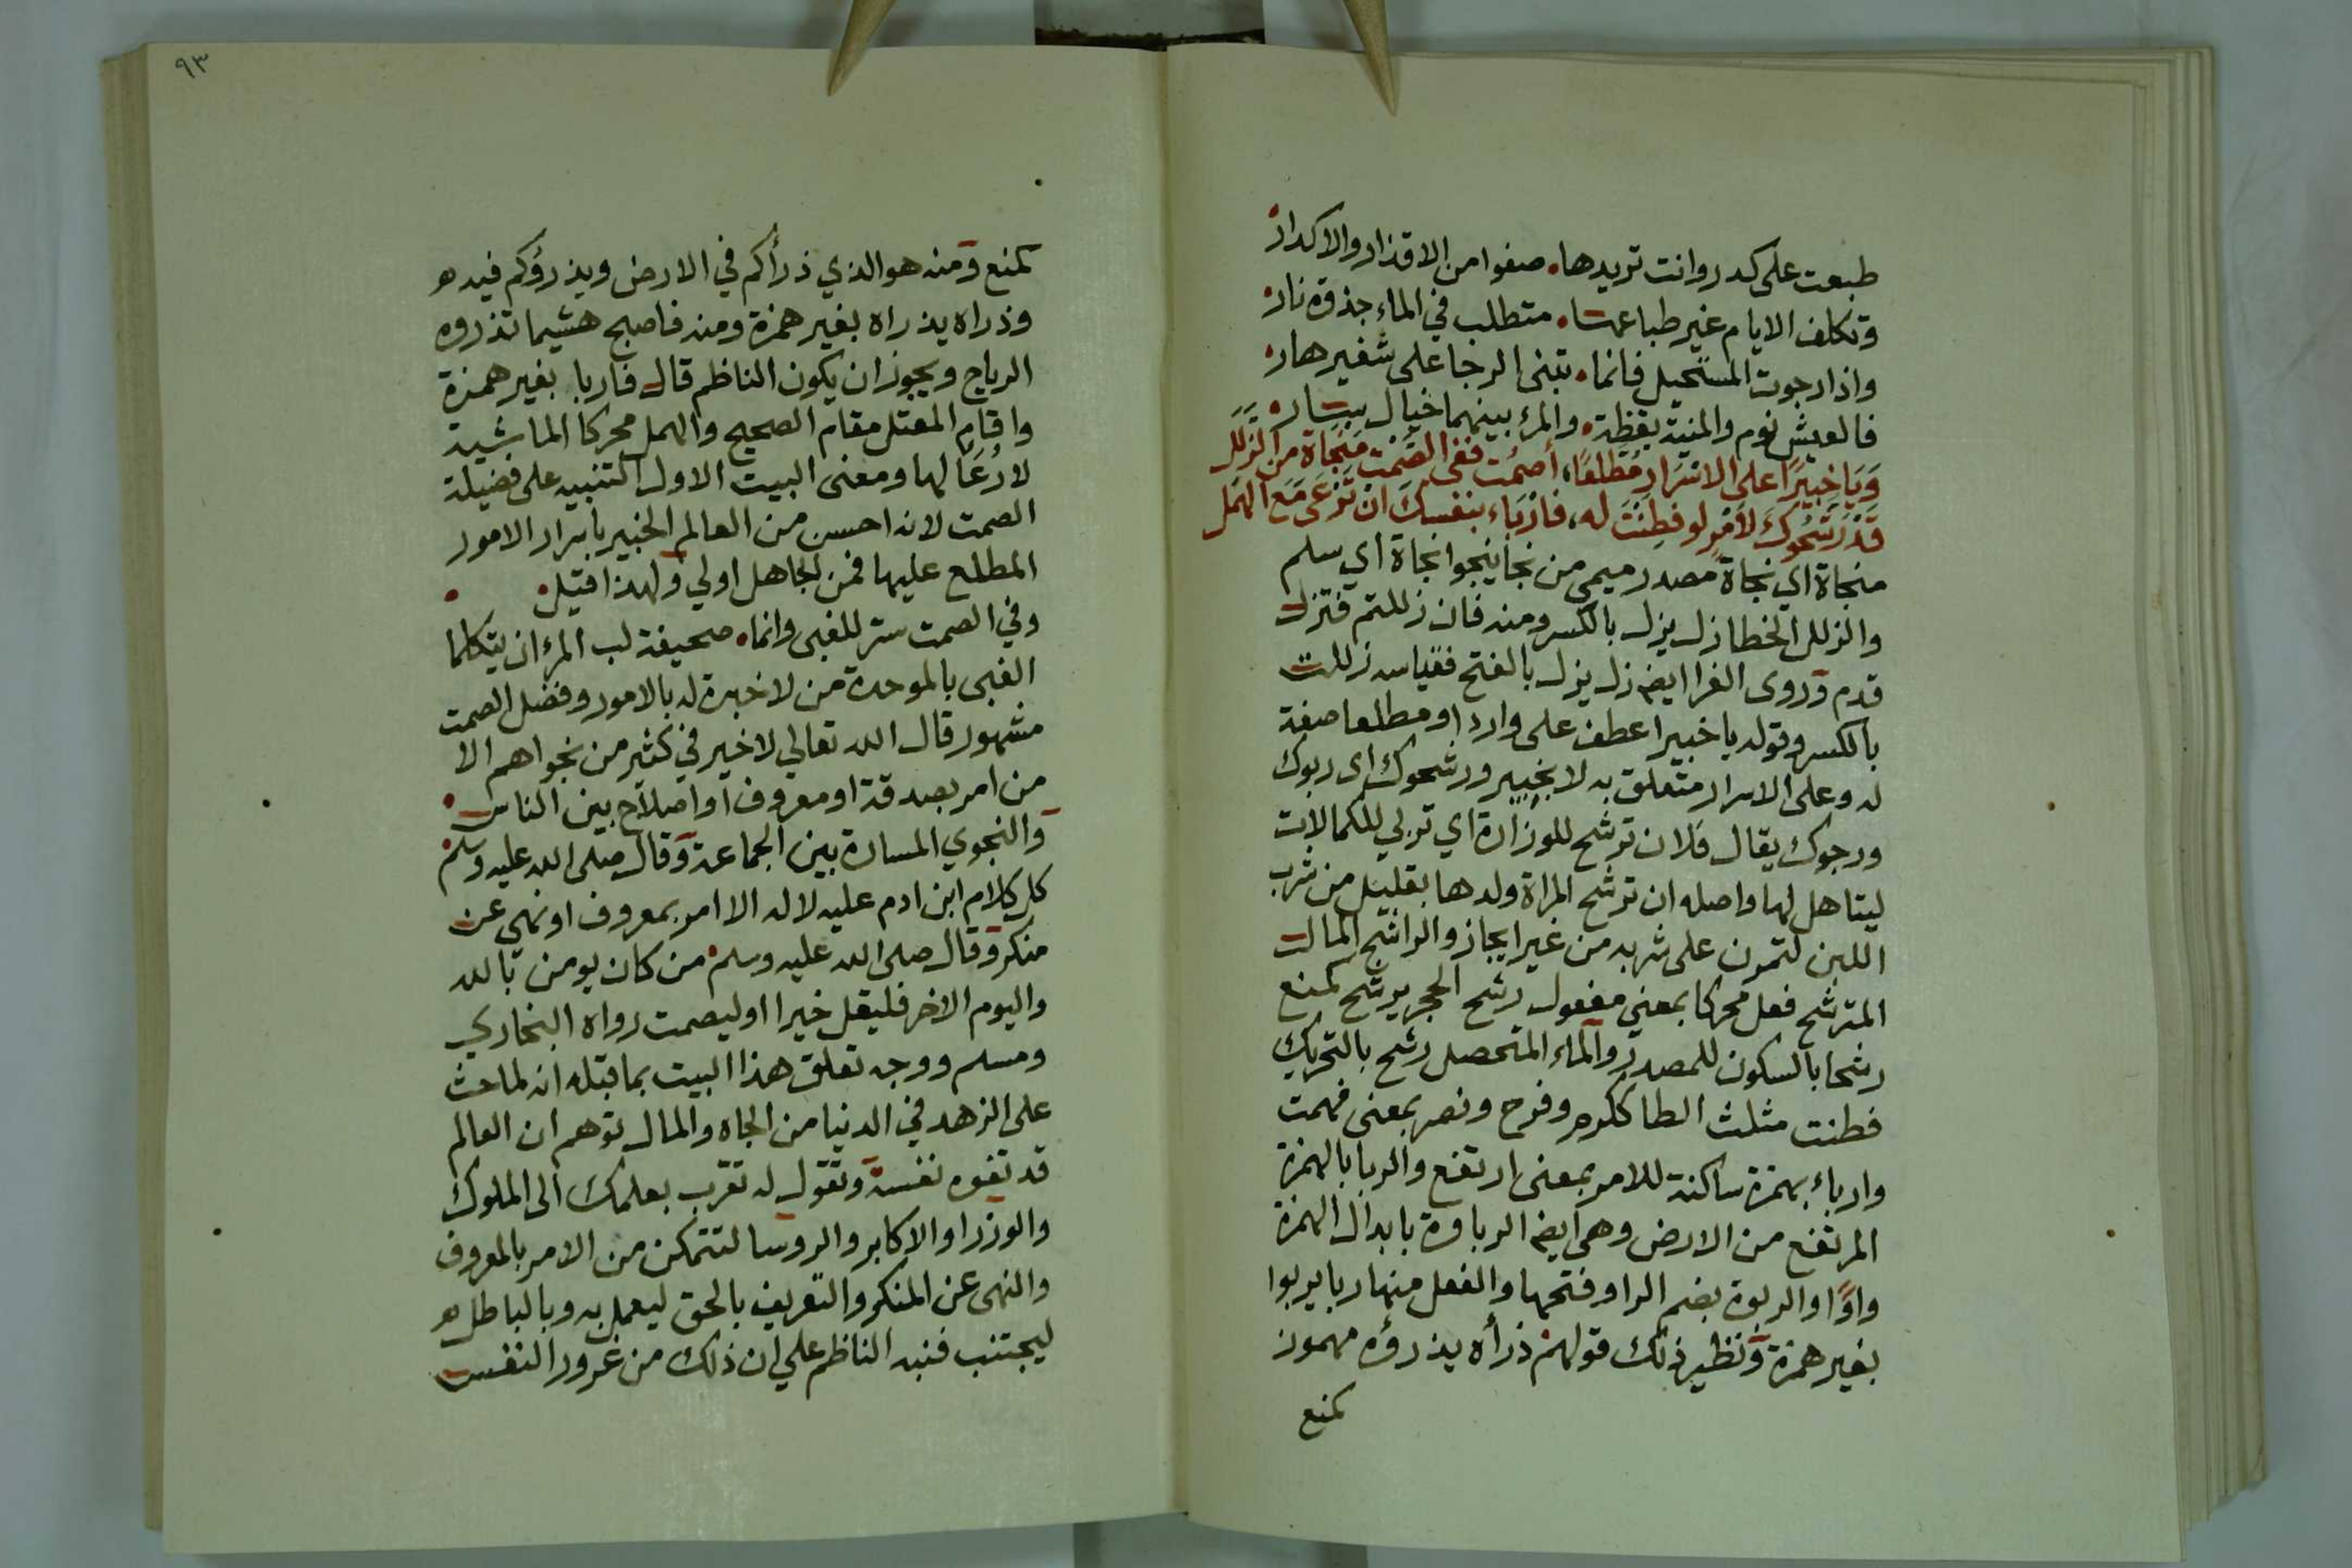 طبعت على كدر وانت تريدها، صفوا من الاقذار والاكدار
وتكلف الايام غير طباعها، متطلب في الماء جذوة نار
واذا رجوت المستحيل فانما، تبنى الرجا على شفير هار
فالعيش نوم والمنية يقظة، والمرء بينهما خيال سار
وَيَا خَبِيرًا عَلَى الاَسْرَارِ مُطَّلِعًا، أُصْمُت فَفِى الصَّمْتِ مَنْجَاةٌ مِنَ الزَّلَلِ
قَدْ رَشَّحُوكَ لأَمْرٍ لو فَطِنْتَ لَه، فَارْبَاء بِنَفْسِكَ أَنْ تَرْعَى مَعَ الهَمَلِ
منجاة اي نجاة مصدر ميمي من نجا ينجوا نجاة اي سلم
والزلل الخطا زل يزل بالكسر ومنه فان زللتم فتزل
قدم وروى الفرا ايضا زل يزل بالفتح فقياسه زللت
بالكسر وقوله يا خبيرا عطف على واردا ومطلعا صفة
له وعلى الاسرار متعلق به لا بخبير ورشحوك اى ربوك
ورجوك يقال فلان ترشح للوزارة اي تربي للكمالات
ليتاهل لها واصله ان ترشح المراة ولدها بقليل من شرب
اللبن لتمرن على شربه من غير ايجاز والراشح المالت
المترشح فعل محركا بمعنى مفعول رشح الحجر يرشح كمنع
رشحا بالسكون للمصدر والماء المتحصل رشح بالتحريك
فطنت مثلث الطا ككرم وفرح ونصر بمعنى فهمت
واربا، بهمزة ساكنة للامر بمعنى ارتفع والربا بالهمزة
المرتفع من الارض وهى ايضا الرباوة بابدال الهمزة
واوًا والربوة بضم الرا وفتحها والفعل منها ربا يربوا
بغير همزة ونظير ذلك قولهم ذرأه يذرؤه مهموز
كمنع
٩٣
كمنع ومنه هو الذي ذرأكم في الارض ويذرؤكم فيه
وذراه يذراه بغير همزة ومنه فاصبح هشيما تذروه
الرياح ويجوز ان يكون الناظم قال فاربا بغير همزة
واقام المعتل مقام الصحيح والهمل محركا الماشية
لا رُعَا لها ومعنى البيت الاول التنبيه على فضيلة
الصمت لانه احسن من العالم الخبير باسرار الامور
المطلع عليها فمن الجاهل اولي ولهذا قيل
وفي الصمت ستر للغبى وانما، صحيفة لب المرء ان يتكلما
الغبى بالموحدة من لا خبرة له بالامور وفضل الصمت
مشهور قال الله تعالي لا خير في كثير من نجواهم الا
من امر بصدقة او معروف او اصلاح بين الناس
والنجوي المسارة بين الجماعة وقال صلى الله عليه وسلم
كل كلام ابن ادم عليه لا له الا امر بمعروف او نهي عن
منكر وقال صلى الله عليه وسلم من كان يومن بالله
واليوم الاخر فليقل خيرا او ليصمت رواه البخاري
ومسلم ووجه تعلق هذا البيت بما قبله انه لما حث
على الزهد في الدنيا من الجاه والمال توهم ان العالم
قد تغوه نفسه وتقول له تقرب بعلمك الى الملوك
والوزرا والاكابر والروسا لتتمكن من الامر بالمعروف
والنهى عن المنكر والتعريف بالحق ليعمل به وبالباطل
ليجتنب فنبه الناظم علي ان ذلك من غرور النفس